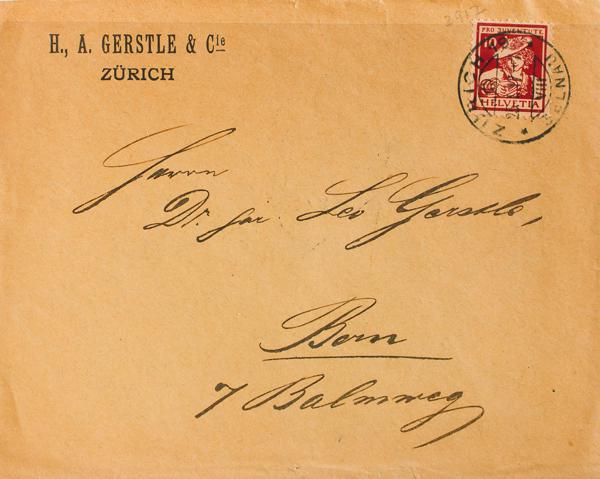 H., A. GERSTLE & Cie
ZÜRICH
2917
PRO JUVENTUTE
10
HELVETIA
ZÜRICH 19
SELNAU
VIII
Herrn
Dr. jur. Leo Gerstle,
Bern
7 Balmweg